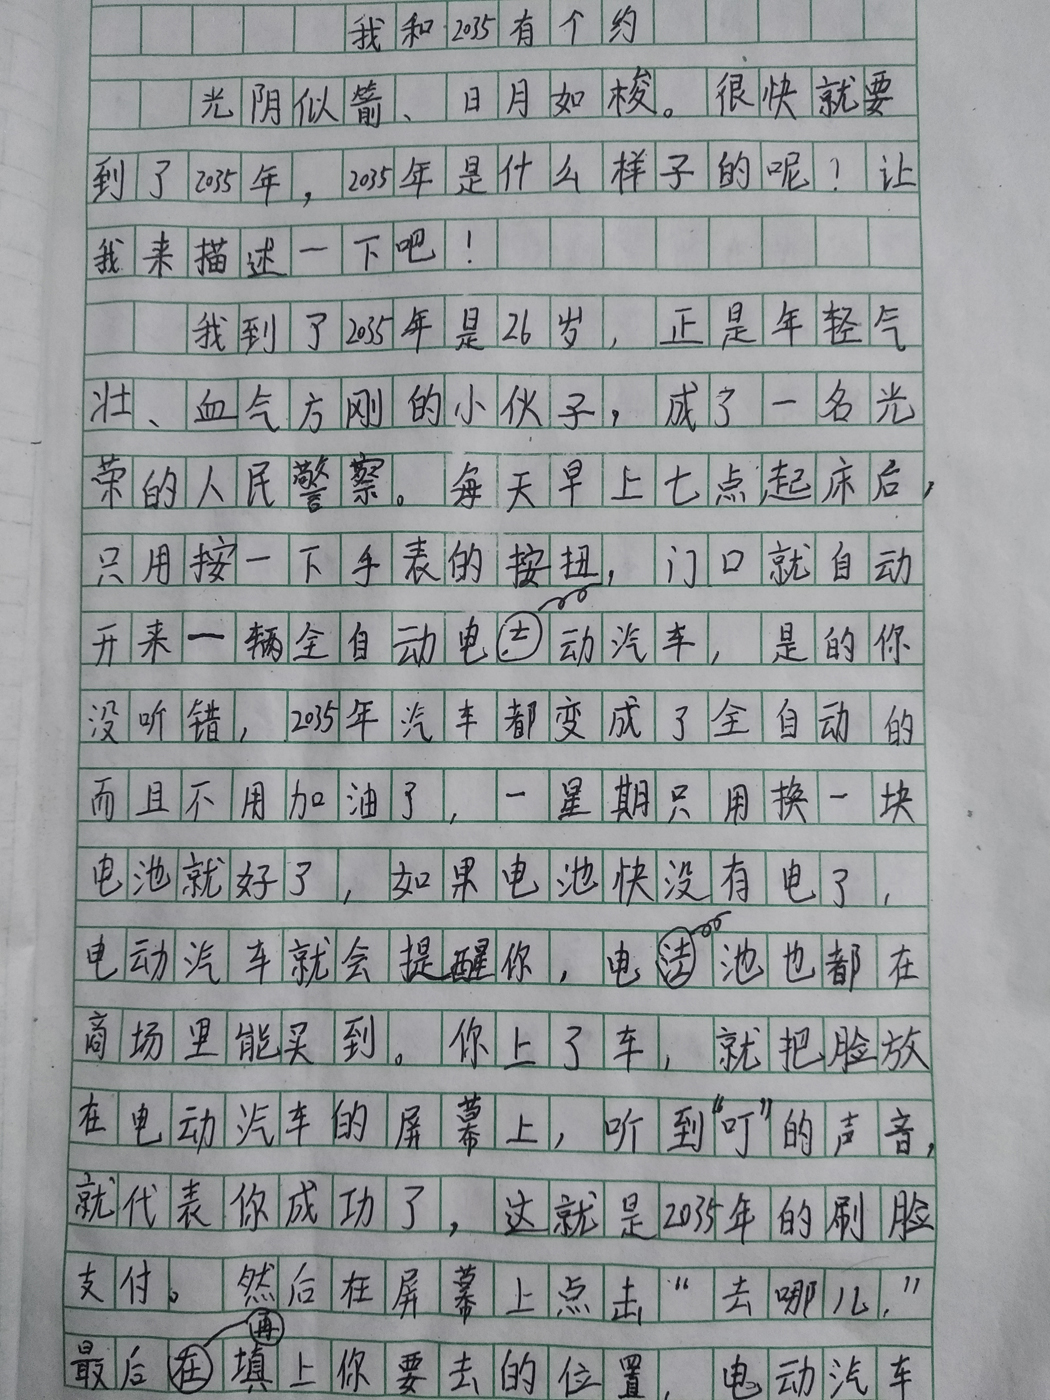 我和2035有个约
光阴似箭、日月如梭。很快就要
到了2035年，2035年是什么样子的呢？让
我来描述一下吧！
我到了2035年是26岁，正是年轻气
壮、血气方刚的小伙子，成了一名光
荣的人民警察。每天早上七点起床后，
只用按一下手表的按扭，门口就自动
开来一辆全自动电动汽车，是的你
没听错，2035年汽车都变成了全自动的
而且不用加油了，一星期只用换一块
电池就好了，如果电池快没有电了，
电动汽车就会提醒你，电池也都在
商场里能买到。你上了车，就把脸放
在电动汽车的屏幕上，听到“叮”的声音，
就代表你成功了，这就是2035年的刷脸
支付。然后在屏幕上点击“去哪儿，”
最后再填上你要去的位置，电动汽车